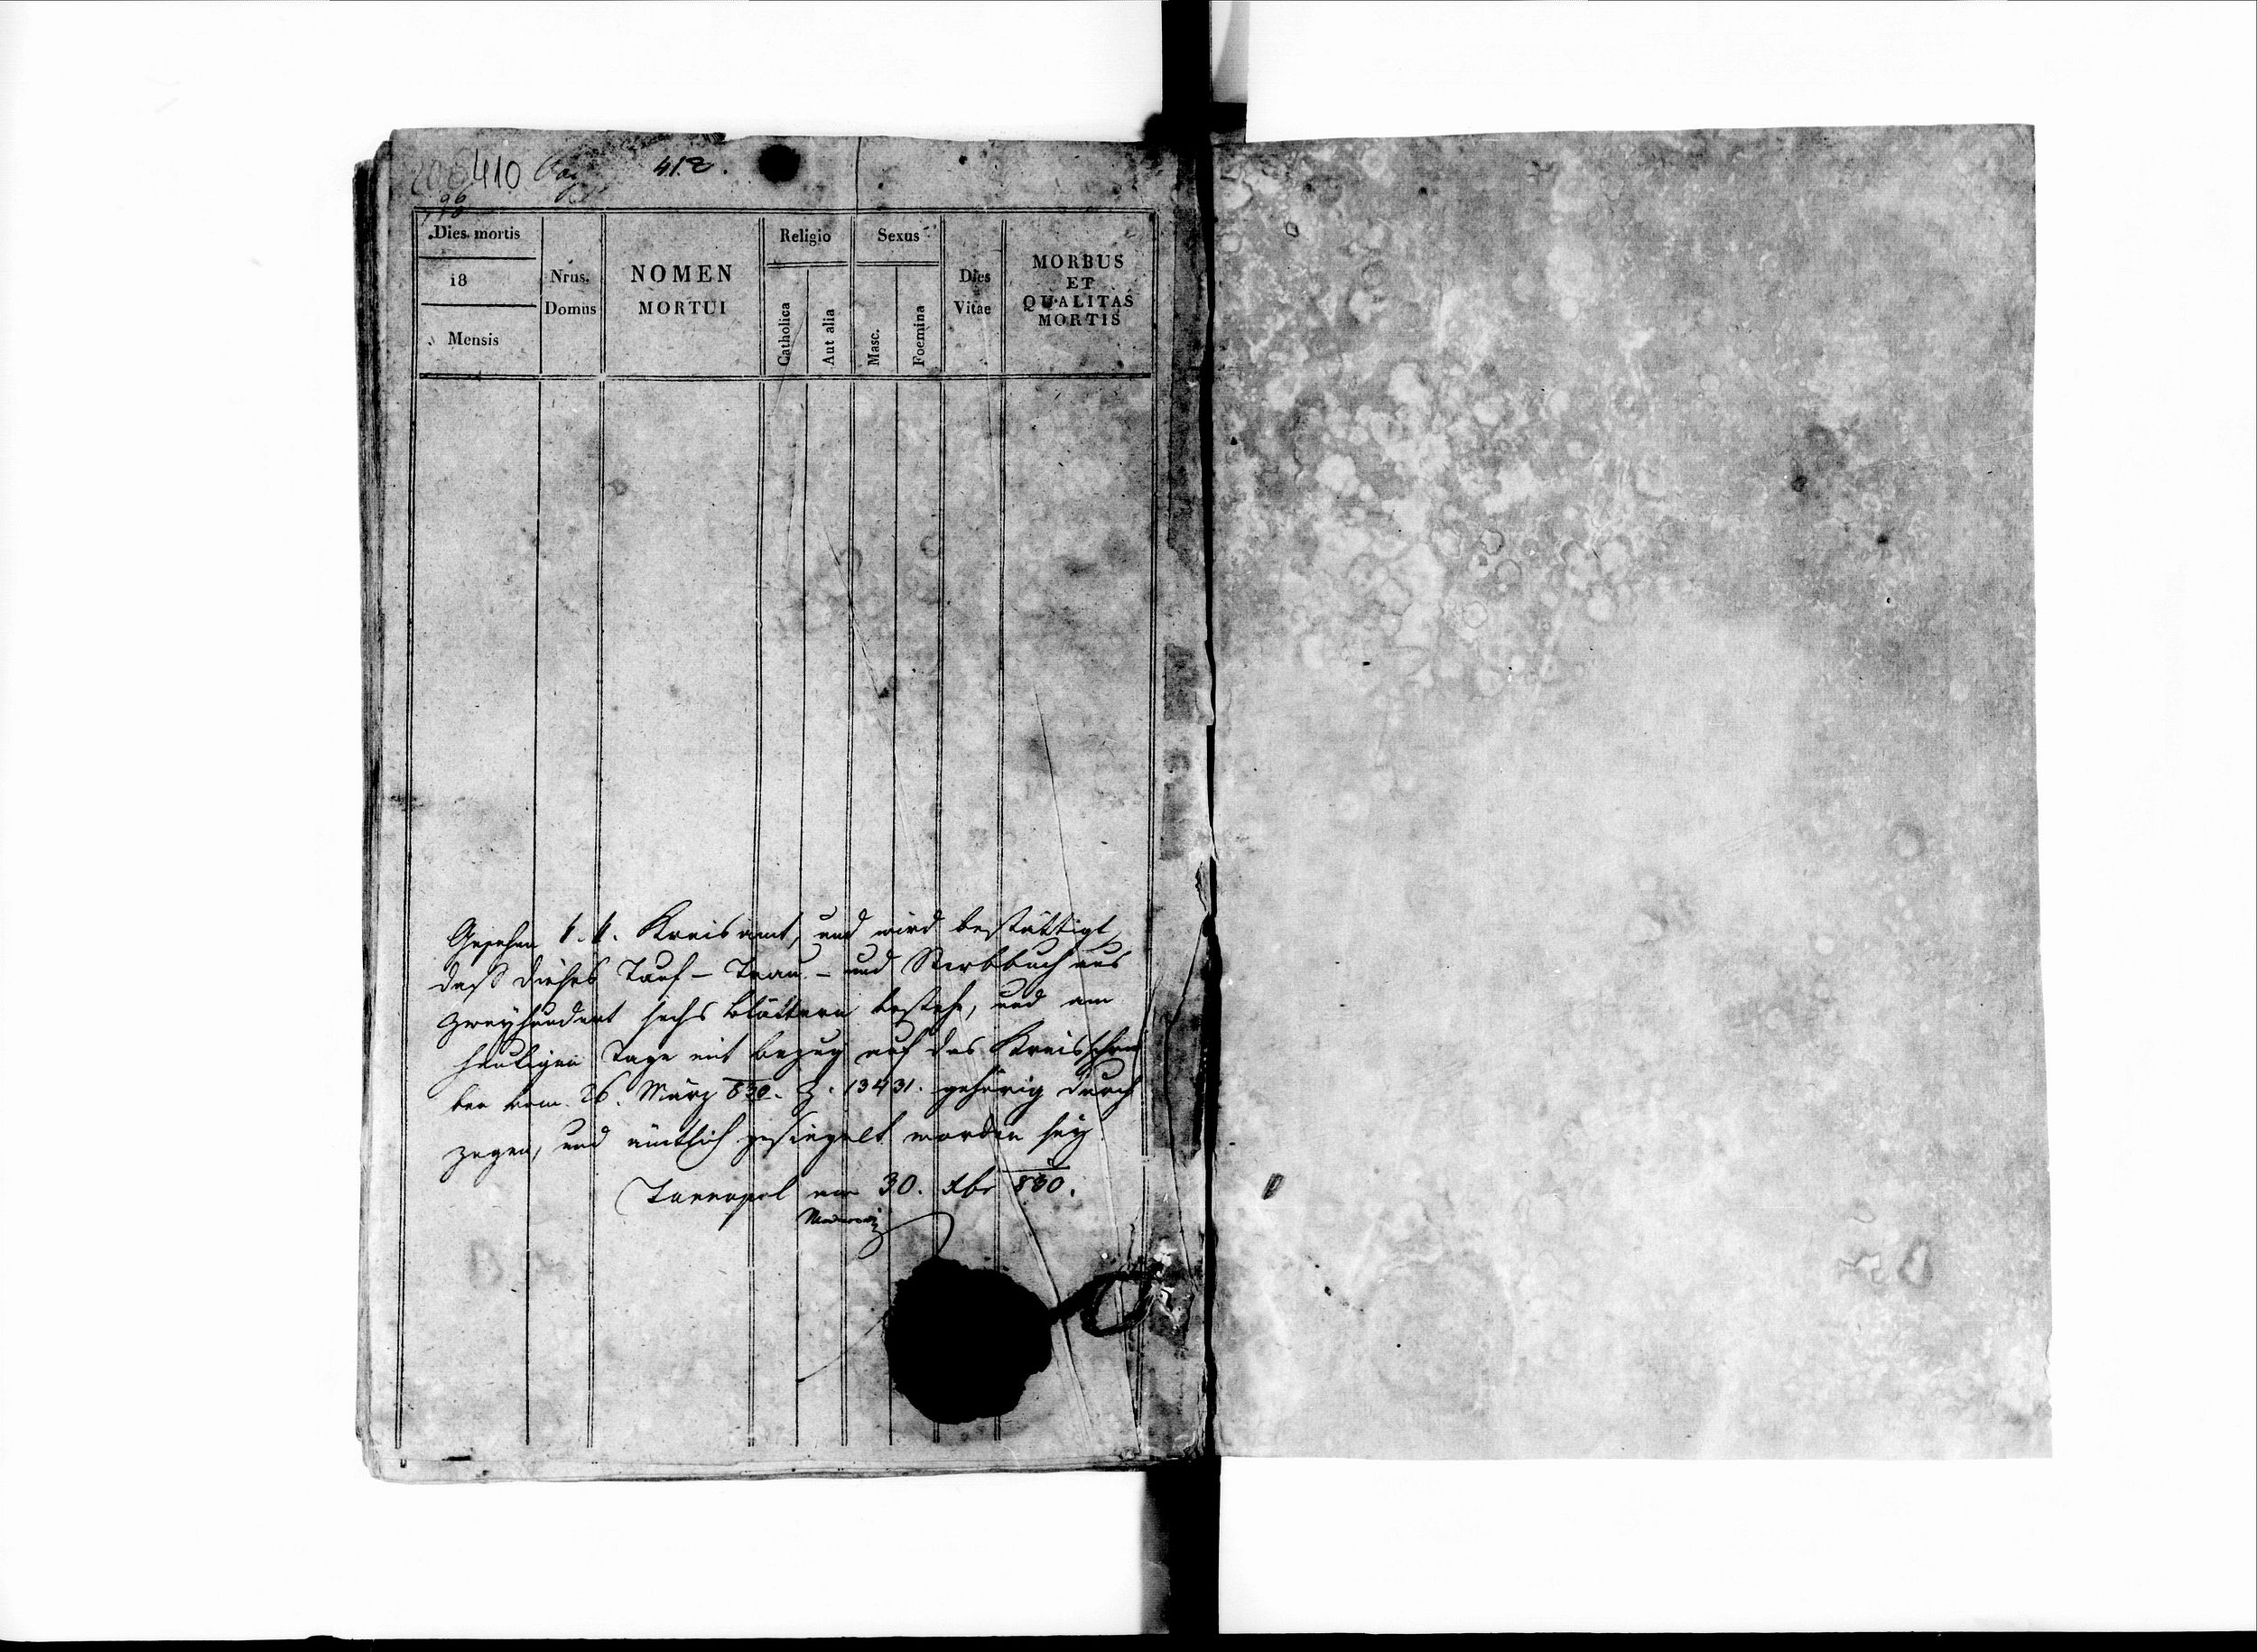 410
412.
Dies mortis
18
Mensis
Nrus. Domus
NOMEN
MORTUI
Religio
Catholica
Aut alia
Sexus
Masc.
Foemina
Dies
Vitae
MORBUS
ET
QUALITAS
MORTIS
Gesehen k. k. Kreisamt, und wird bestättigt
daß dieses Tauf- Trau- und Sterbbuch aus
zweyhundert sechs Blättern bestehe, und am
heutigen Tage mit Bezug auf das Kreisschrei
ben vom 26. März 830. Z. 13431. gehörig durch
zogen, und ämtlich gesiegelt worden sey
Tarnopol am 30. Xbr 830.